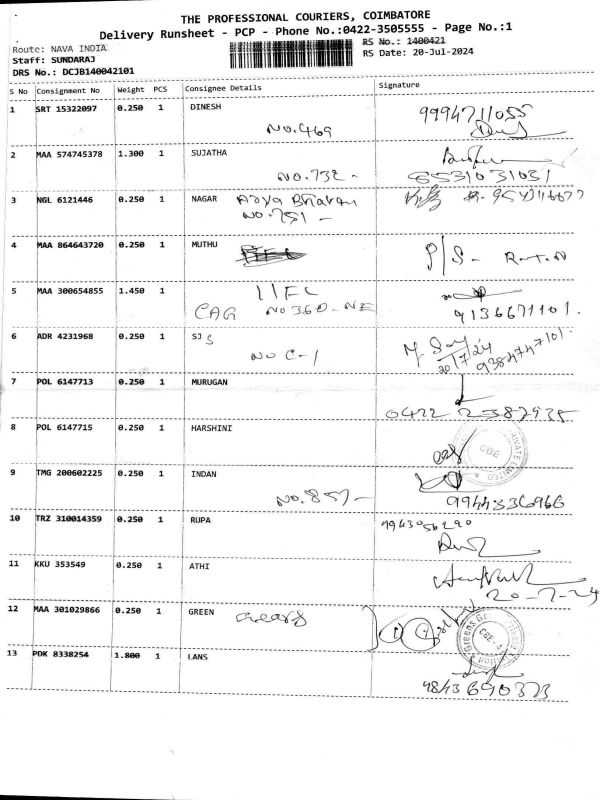 THE PROFESSIONAL COURIERS, COIMBATORE
Delivery Runsheet - PCP - Phone No.:0422-3505555 - Page No.:1
Route: NAVA INDIA
RS No.: 1400421
Staff: SUNDARAJ
RS Date: 20-Jul-2024
DRS No.: DCJB140042101
S No Consignment No Weight PCS Consignee Details Signature
1 SRT 15322097 0.250 1 DINESH 9994711055
No.469
2 MAA 574745378 1.300 1 SUJATHA
No.732 - 8531031031
3 NGL 6121446 0.250 1 NAGAR Arya Bhavan
No.751 -
4 MAA 864643720 0.250 1 MUTHU P/S- R.T.N
5 MAA 300654855 1.450 1 IIFL
CAG No 360-NE 9136671101.
6 ADR 4231968 0.250 1 SJ S
No C-1 20/7/24 9384747101.
7 POL 6147713 0.250 1 MURUGAN
0422
8 POL 6147715 0.250 1 HARSHINI
CBE
PRIVATE LIMITED
9 TMG 200602225 0.250 1 INDAN
No.857- 9944336966
10 TRZ 310014359 0.250 1 RUPA 9943056290
11 KKU 353549 0.250 1 ATHI
20-7-24
12 MAA 301029866 0.250 1 GREEN Gears
CBE-4
13 PDK 8338254 1.800 1 LANS
9843 690373